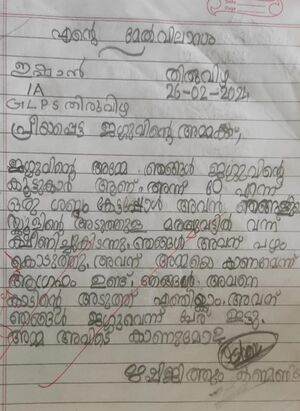 എന്റെ മേൽവിലാസം
ഇഷാൻ തിരുവിഴ
1A 26-02-2024
GLPS തിരുവിഴ
പ്രിയപ്പെട്ട ജഗ്ഗുവിന്റെ അമ്മക്ക്,
ജഗ്ഗുവിന്റെ അമ്മേ ഞങ്ങൾ ജഗ്ഗുവിന്റെ
കൂട്ടുകാർ ആണ്. അന്ന് ഠോ എന്ന്
ഒരു ശബ്ദം കേട്ടപ്പോൾ അവൻ ഞങ്ങളുടെ
സ്കൂളിന്റെ അടുത്തുള്ള മരത്തുവട്ടിൽ വന്ന്
കിടന്നു. ഞങ്ങൾ അവന് പഴം
കൊടുത്തു. അവന് അമ്മയെ കാണണമെന്ന്
ആഗ്രഹം ഉണ്ട്. ഞങ്ങൾ അവനെ
കാടിന്റെ അടുത്ത് എത്തിക്കാം. അവന്
ഞങ്ങൾ ജഗ്ഗുവെന്ന് പേര് ഇട്ടു.
അമ്മ അവിടെ കാണുമോ